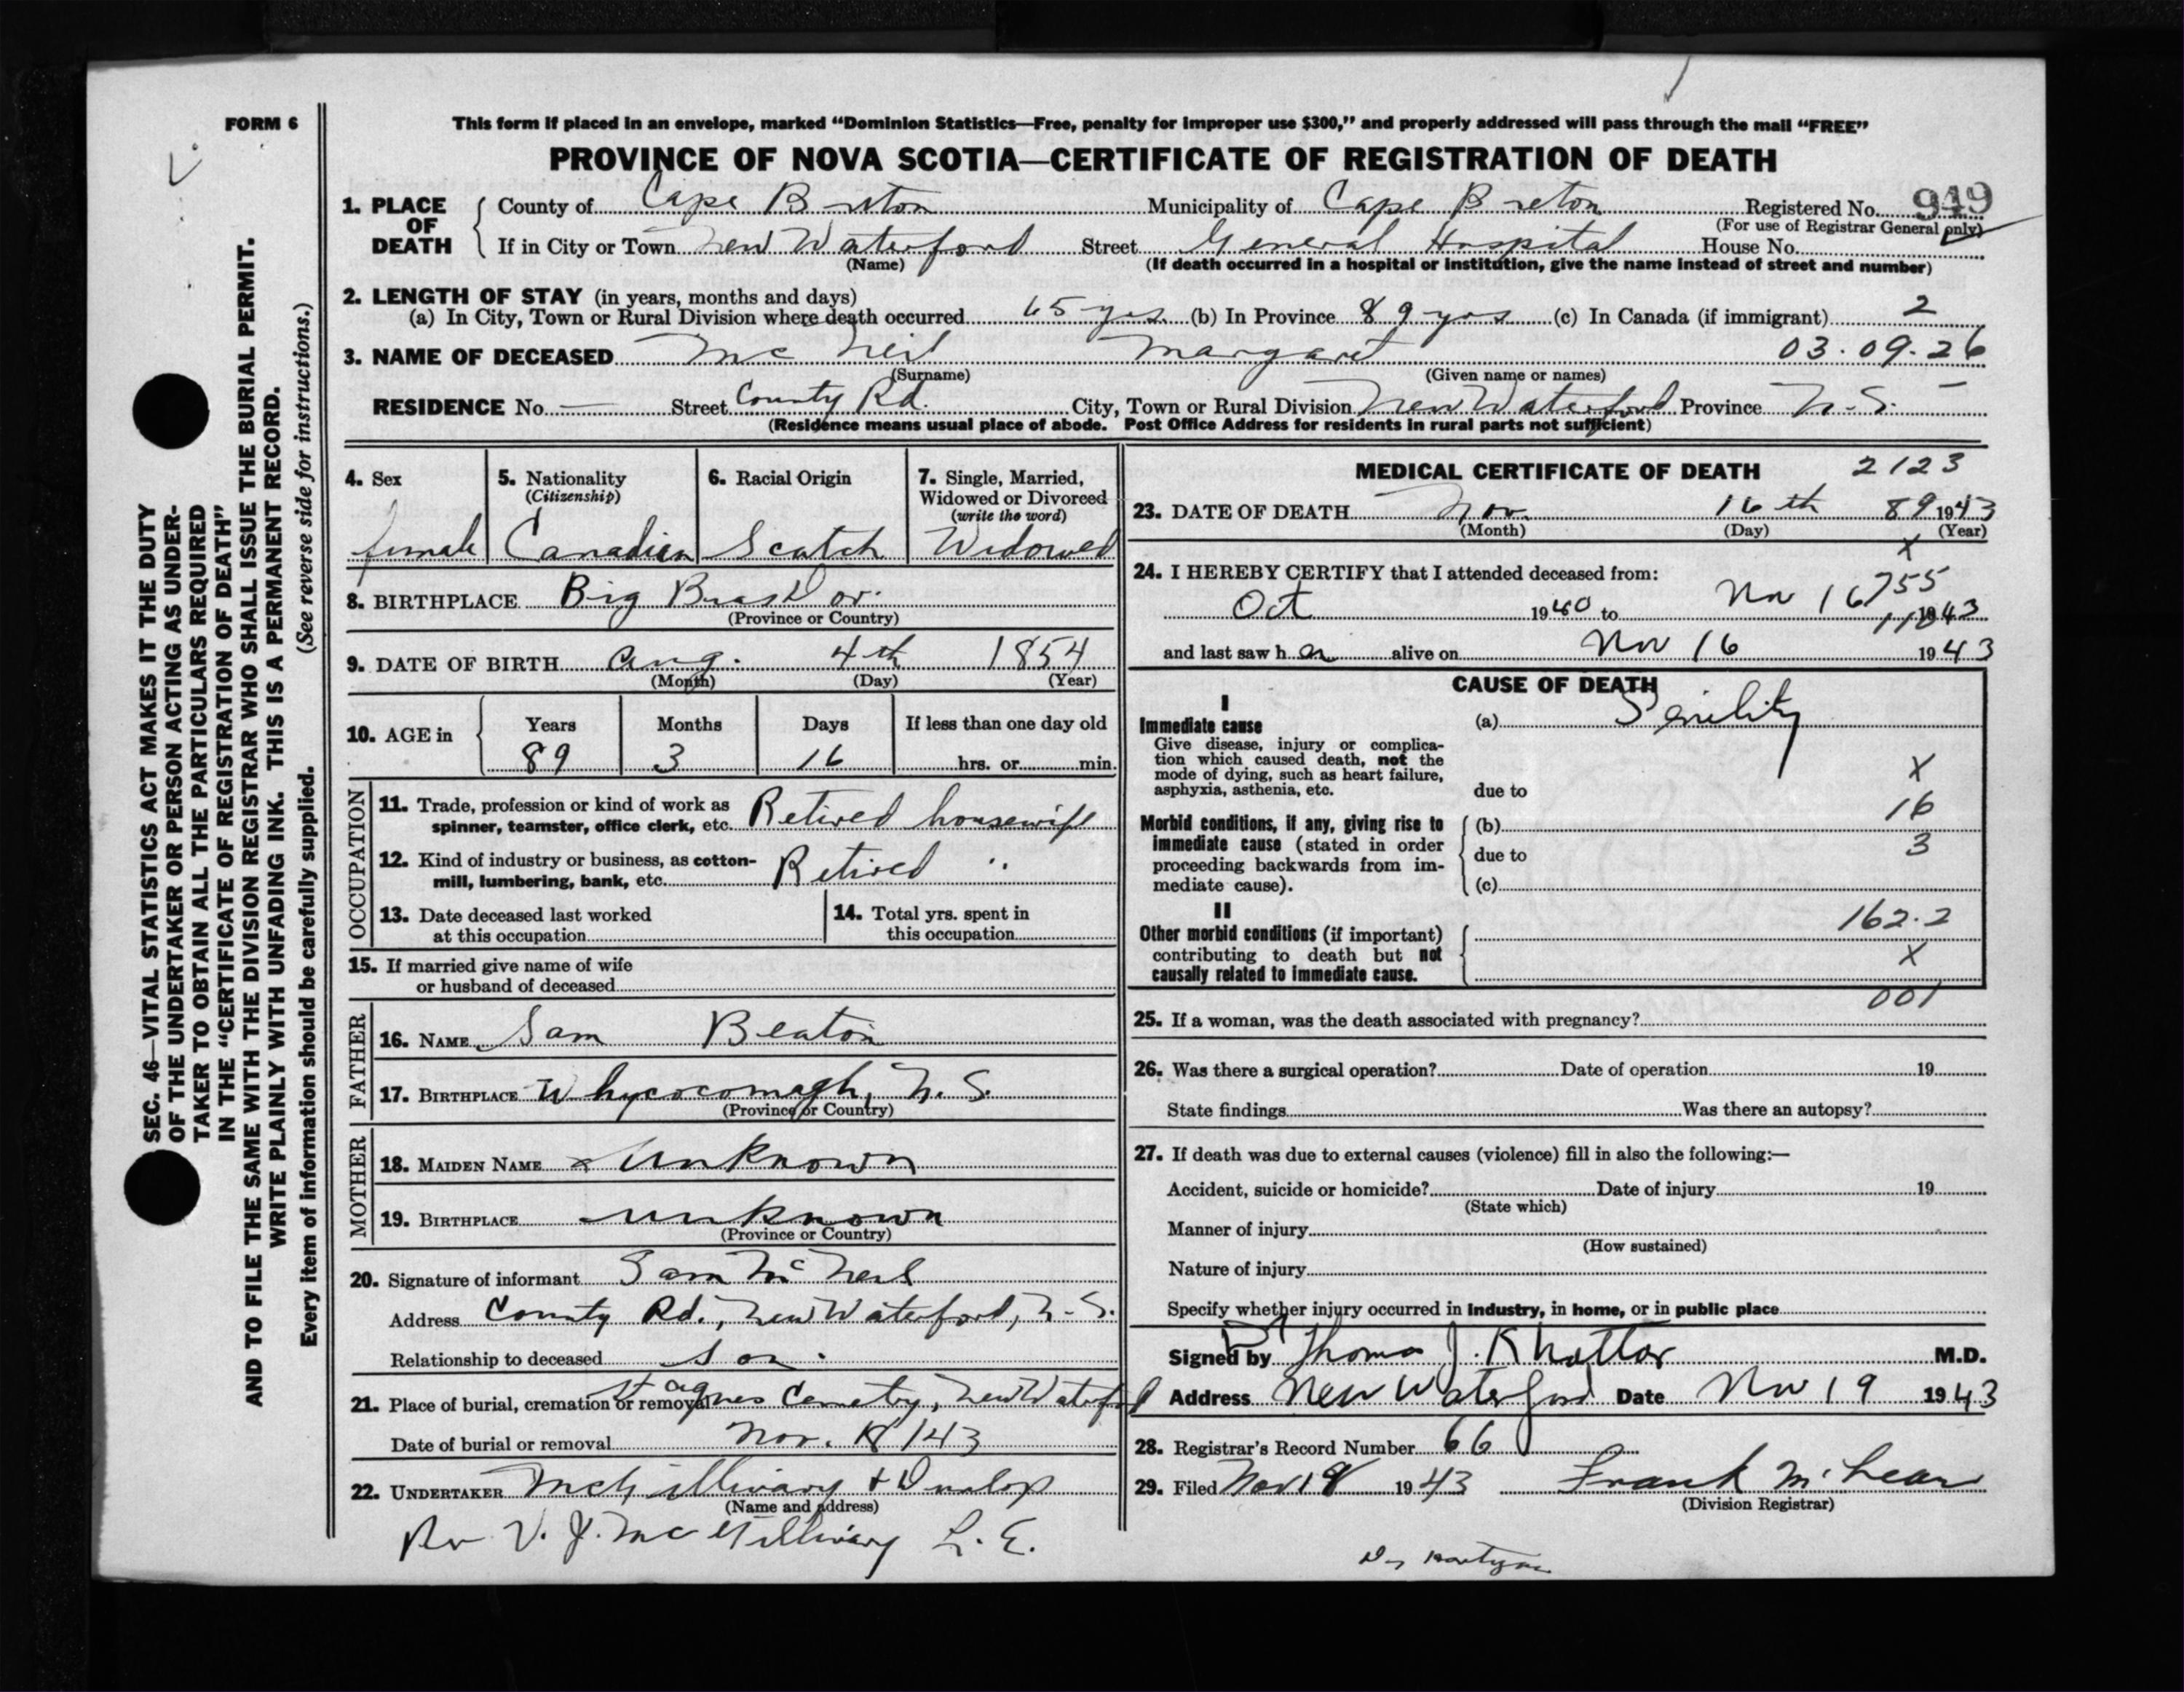 FORM 6
This form if placed in an envelope, marked "Dominion Statistics—Free, penalty for improper use $300," and properly addressed will pass through the mail "FREE"
PROVINCE OF NOVA SCOTIA—CERTIFICATE OF REGISTRATION OF DEATH
SEC. 46—VITAL STATISTICS ACT MAKES IT THE DUTY
OF THE UNDERTAKER OR PERSON ACTING AS UNDER-
TAKER TO OBTAIN ALL THE PARTICULARS REQUIRED
IN THE "CERTIFICATE OF REGISTRATION OF DEATH"
AND TO FILE THE SAME WITH THE DIVISION REGISTRAR WHO SHALL ISSUE THE BURIAL PERMIT.
WRITE PLAINLY WITH UNFADING INK. THIS IS A PERMANENT RECORD.
Every item of information should be carefully supplied. (See reverse side for instructions.)
1. PLACE OF DEATH County of Cape Breton Municipality of Cape Breton Registered No. 949
(For use of Registrar General only)
If in City or Town New Waterford Street General Hospital House No.
(Name) (If death occurred in a hospital or institution, give the name instead of street and number)
2. LENGTH OF STAY (in years, months and days)
(a) In City, Town or Rural Division where death occurred 65 yrs (b) In Province 89 yrs (c) In Canada (if immigrant) 2
3. NAME OF DECEASED Mc Neil Margaret 03.09.26
(Surname) (Given name or names)
RESIDENCE No. — Street County Rd. City, Town or Rural Division New Waterford Province N.S.
(Residence means usual place of abode. Post Office Address for residents in rural parts not sufficient)
4. Sex female
5. Nationality (Citizenship) Canadian
6. Racial Origin Scotch
7. Single, Married, Widowed or Divorced (write the word) Widowed
8. BIRTHPLACE Big Bras D'or.
(Province or Country)
9. DATE OF BIRTH Aug. 4th 1854
(Month) (Day) (Year)
10. AGE in Years 89 Months 3 Days 16 If less than one day old hrs. or min.
OCCUPATION
11. Trade, profession or kind of work as spinner, teamster, office clerk, etc. Retired housewife
12. Kind of industry or business, as cotton-mill, lumbering, bank, etc. Retired "
13. Date deceased last worked at this occupation
14. Total yrs. spent in this occupation
15. If married give name of wife or husband of deceased
FATHER
16. NAME Sam Beaton
17. BIRTHPLACE Whycocomagh, N.S.
(Province or Country)
MOTHER
18. MAIDEN NAME Unknown
19. BIRTHPLACE unknown
(Province or Country)
20. Signature of informant Sam McNeil
Address County Rd., New Waterford, N.S.
Relationship to deceased son.
21. Place of burial, cremation or removal St Agnes Cemetry, New Waterford
Date of burial or removal Nov. 18/43
22. UNDERTAKER McGillivary & Dunlop
(Name and address)
Per V. J. McGillivary L. E.
MEDICAL CERTIFICATE OF DEATH 2123
23. DATE OF DEATH Nov. 16th 89 1943
(Month) (Day) (Year)
x
24. I HEREBY CERTIFY that I attended deceased from:
755
Oct 1940 to Nov 16 1943
and last saw her alive on Nov 16 1943
CAUSE OF DEATH
I
Immediate cause (a) Senility
Give disease, injury or complica-
tion which caused death, not the
mode of dying, such as heart failure,
asphyxia, asthenia, etc. due to
x
16
Morbid conditions, if any, giving rise to (b)
immediate cause (stated in order due to 3
proceeding backwards from im-
mediate cause). (c)
II
Other morbid conditions (if important) 162.2
contributing to death but not x
causally related to immediate cause.
001
25. If a woman, was the death associated with pregnancy?
26. Was there a surgical operation? Date of operation 19
State findings Was there an autopsy?
27. If death was due to external causes (violence) fill in also the following:—
Accident, suicide or homicide? Date of injury 19
(State which)
Manner of injury
(How sustained)
Nature of injury
Specify whether injury occurred in industry, in home, or in public place
Signed by Dr Thomas J. Khattar M.D.
Address New Waterford Date Nov 19 1943
28. Registrar's Record Number 66
29. Filed Nov 18 1943 Frank McLean
(Division Registrar)